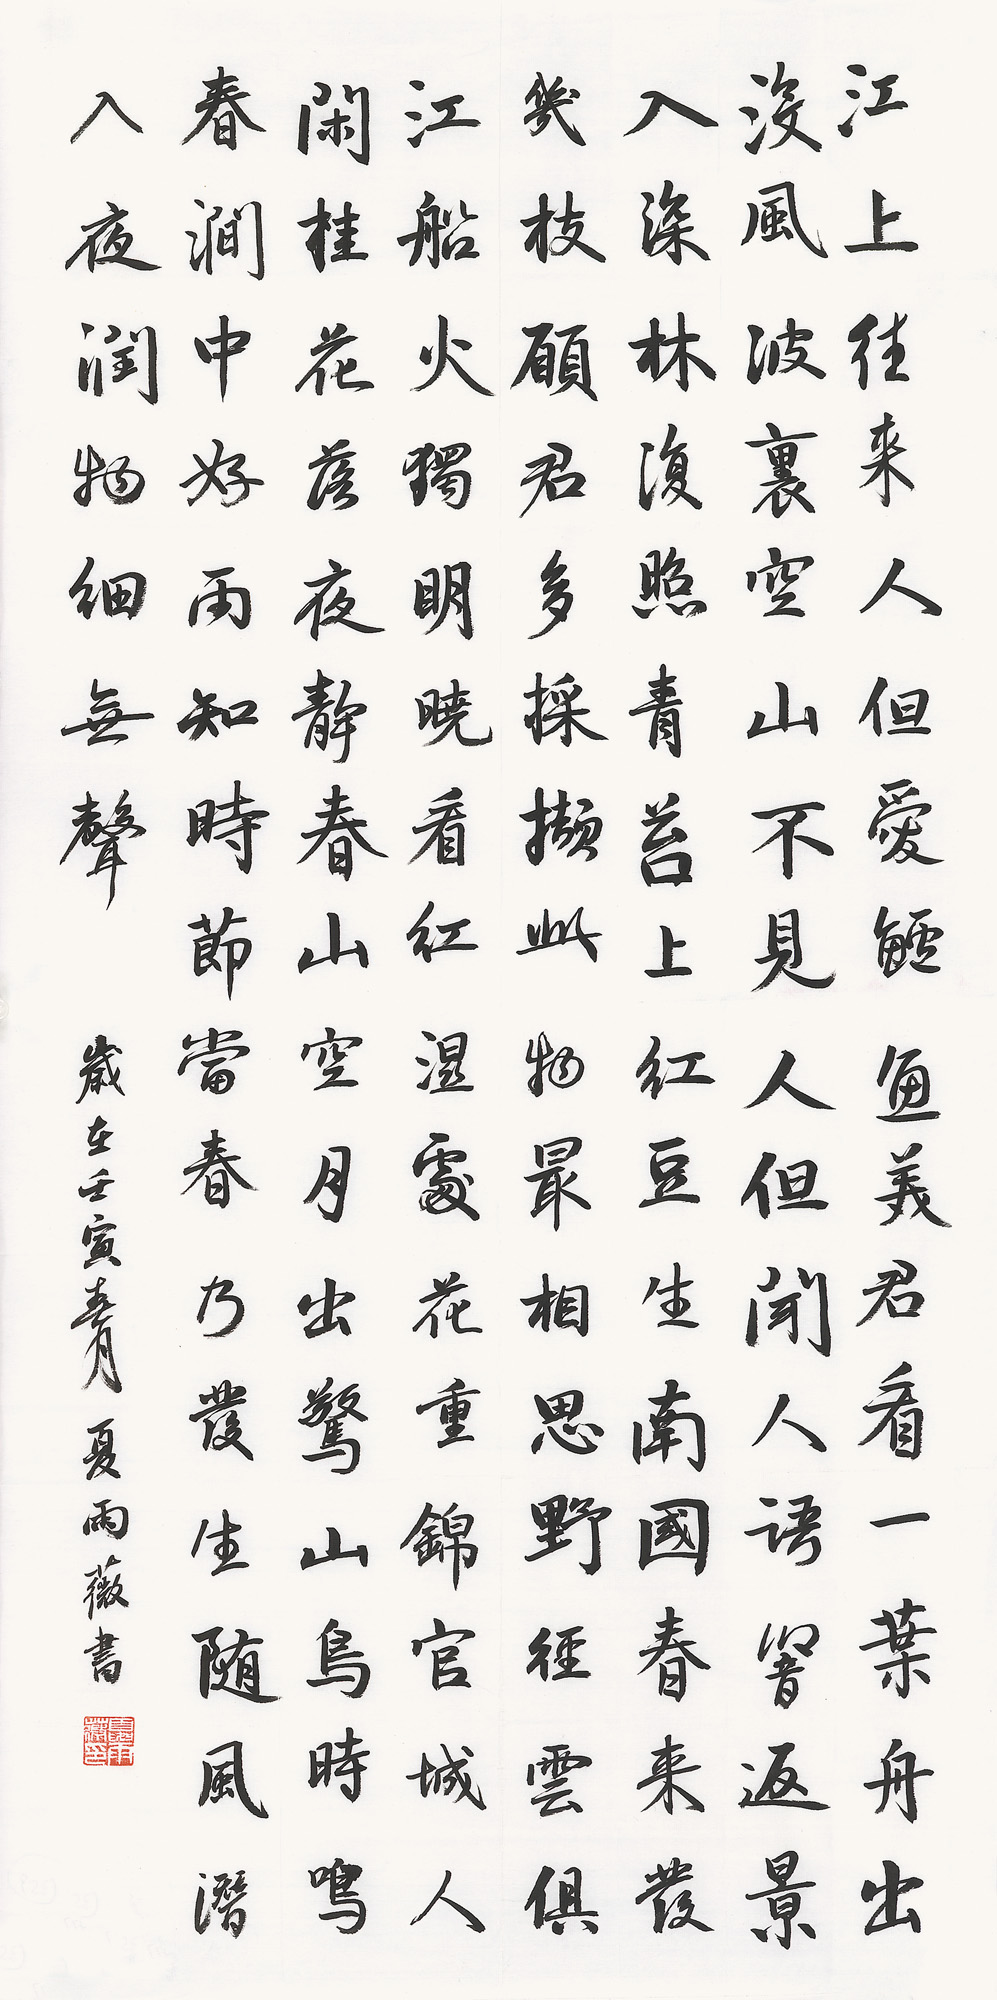 江上往来人但愛鱸魚美君看一葉舟出
没風波裏空山不見人但聞人語響返景
入深林復照青苔上紅豆生南國春来發
幾枝願君多採擷此物最相思野徑雲俱
江船火獨明曉看紅濕處花重錦官城人
閑桂花落夜静春山空月出驚山鳥時鳴
春澗中好雨知時節當春乃發生随風潛
入夜潤物細無聲
歲在壬寅春月夏雨薇書
夏雨薇印